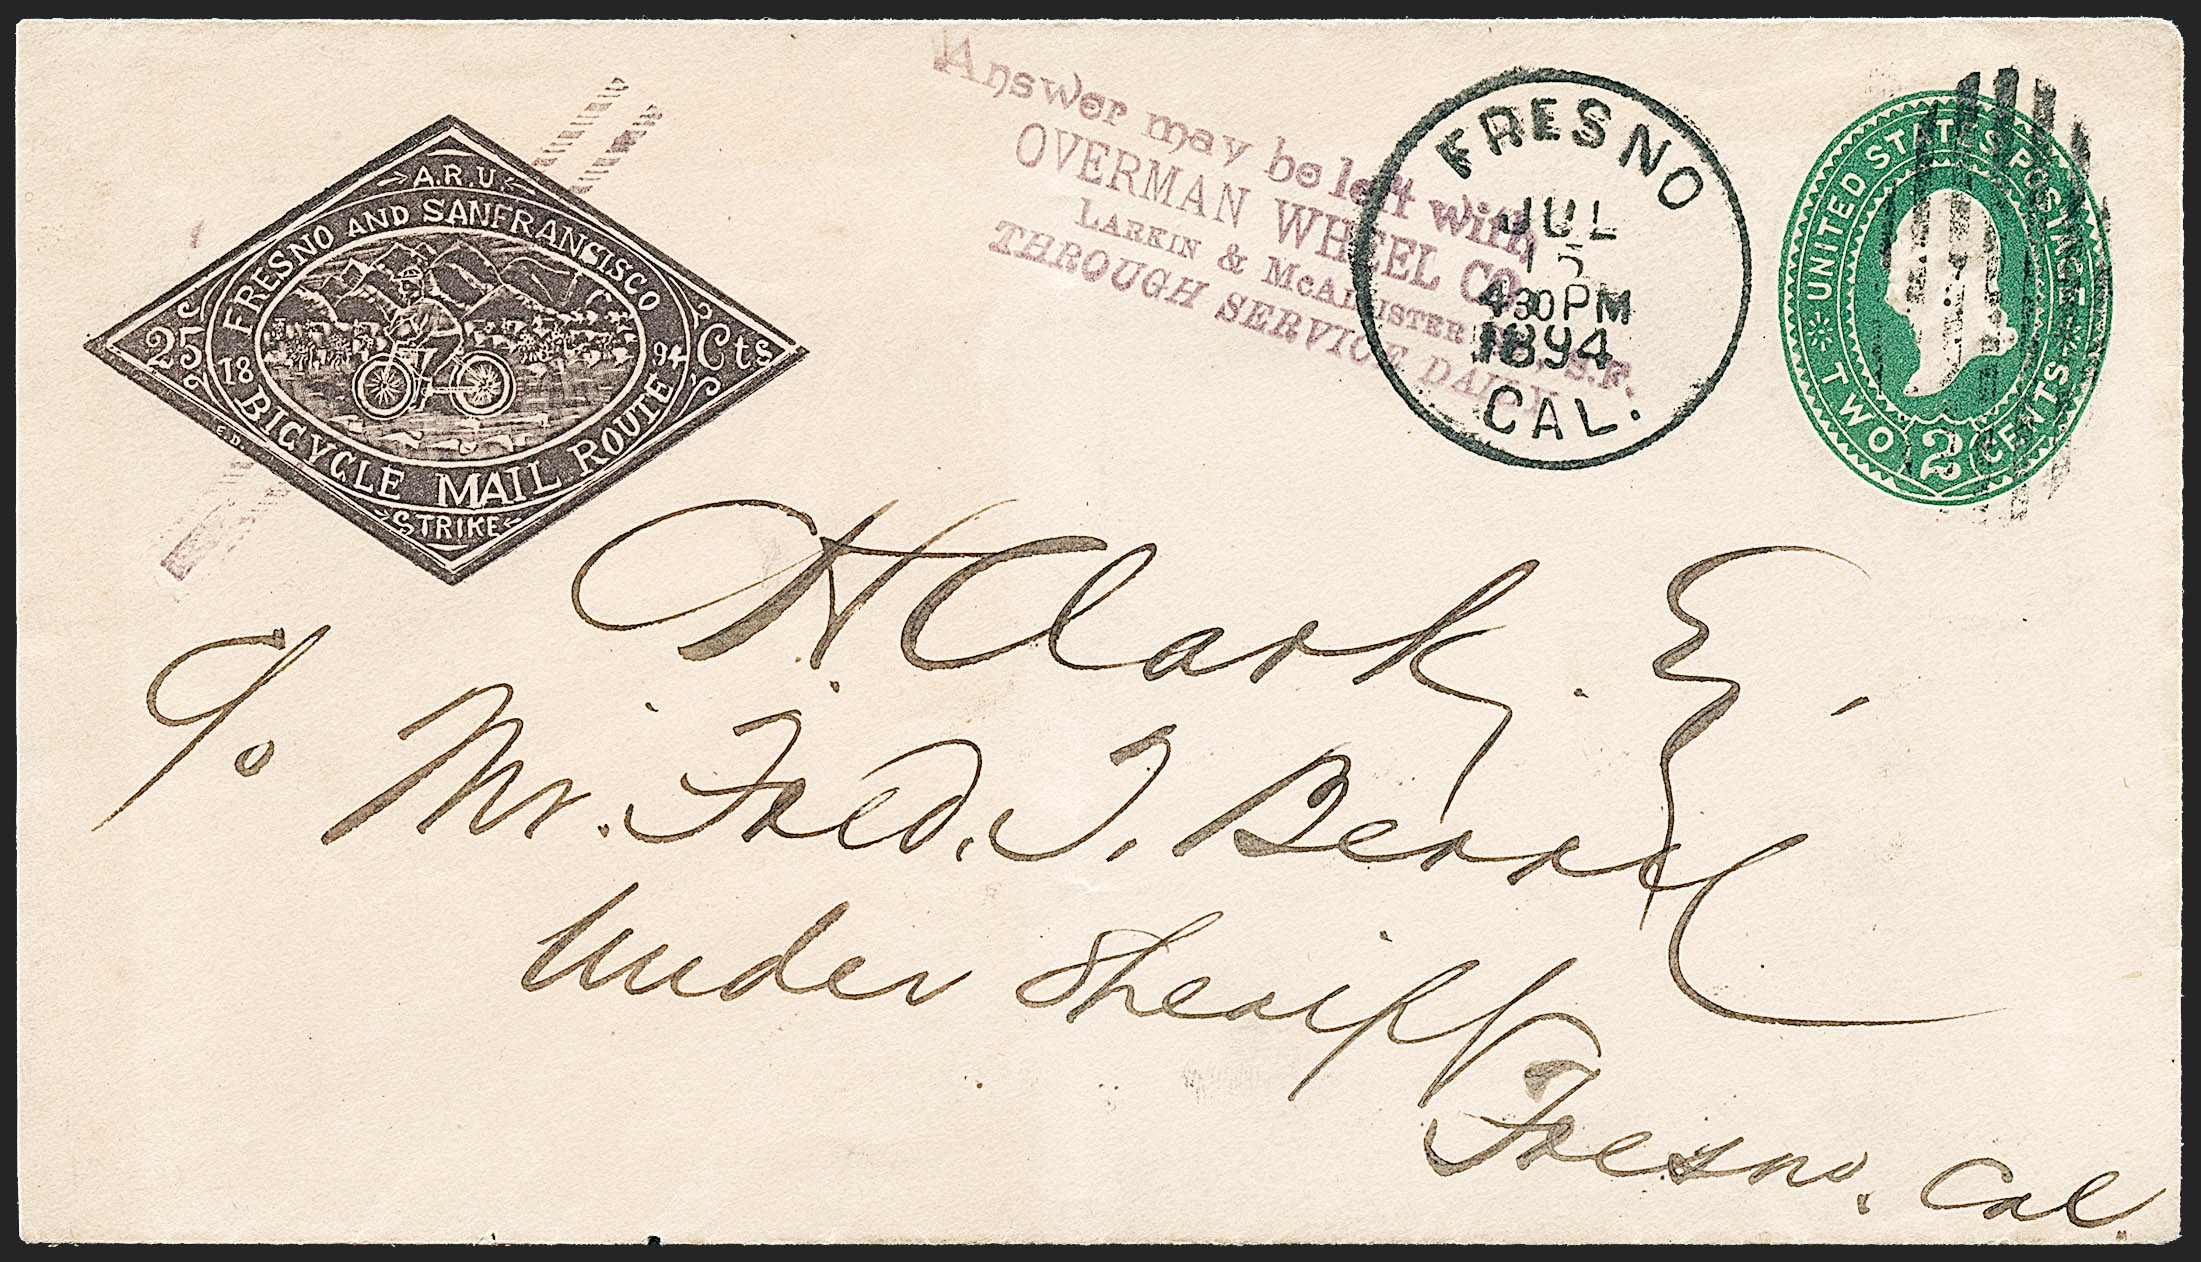 A.R.U.
FRESNO AND SANFRANSISCO
25 Cts
18 94
BICYCLE MAIL ROUTE
STRIKE
E.D.
Answer may be left with
OVERMAN WHEEL CO.
LARKIN & MCALLISTER S.F.
THROUGH SERVICE DAILY
FRESNO
JUL
15
4 30 PM
1894
CAL.
UNITED STATES POSTAGE
TWO 2 CENTS
H Clark,
c/o Mr. Fred. T. Berry
Under Sheriff
Fresno. Cal.